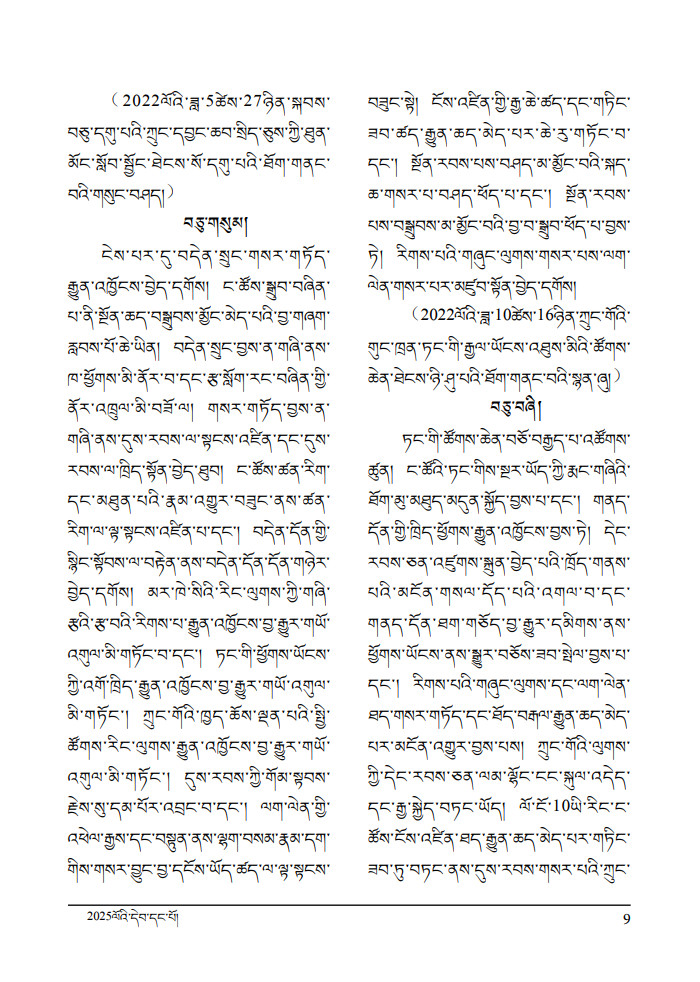 (2022ལོའི་ཟླ་5ཚེས་27ཉིན་སྐབས་
བཅུ་དགུ་པའི་ཀྲུང་དབྱང་ཆབ་སྲིད་ཅུས་ཀྱི་ཐུན་
མོང་སློབ་སྦྱོང་ཐེངས་སོ་དགུ་པའི་ཐོག་གནང་
བའི་གསུང་བཤད།)
བཅུ་གསུམ།
ངེས་པར་དུ་བདེན་སྲུང་གསར་གཏོད་
རྒྱུན་འཁྱོངས་བྱེད་དགོས། ང་ཚོས་སྒྲུབ་བཞིན་
པ་ནི་སྔོན་ཆད་བསྒྲུབས་མྱོང་མེད་པའི་བྱ་གཞག་
རླབས་པོ་ཆེ་ཡིན། བདེན་སྲུང་བྱས་ན་གཞི་ནས་
ཁ་ཕྱོགས་མི་ནོར་བ་དང་རྩ་སློག་རང་བཞིན་གྱི་
ནོར་འཁྲུལ་མི་བཟོ་ལ། གསར་གཏོད་བྱས་ན་
གཞི་ནས་དུས་རབས་ལ་སྟངས་འཛིན་དང་དུས་
རབས་ལ་ཁྲིད་སྟོན་བྱེད་ཐུབ། ང་ཚོས་ཚན་རིག་
དང་མཐུན་པའི་རྣམ་འགྱུར་བཟུང་ནས་ཚན་
རིག་ལ་ལྟ་སྟངས་འཛིན་པ་དང་། བདེན་དོན་གྱི་
སྙིང་སྟོབས་ལ་བརྟེན་ནས་བདེན་དོན་དོན་གཉེར་
བྱེད་དགོས། མར་ཁེ་སིའི་རིང་ལུགས་ཀྱི་གཞི་
རྩའི་རྩ་བའི་རིགས་པ་རྒྱུན་འཁྱོངས་བྱ་རྒྱུར་གཡོ་
འགུལ་མི་གཏོང་བ་དང་། ཏང་གི་ཕྱོགས་ཡོངས་
ཀྱི་འགོ་ཁྲིད་རྒྱུན་འཁྱོངས་བྱ་རྒྱུར་གཡོ་འགུལ་
མི་གཏོང་། ཀྲུང་གོའི་ཁྱད་ཆོས་ལྡན་པའི་སྤྱི་
ཚོགས་རིང་ལུགས་རྒྱུན་འཁྱོངས་བྱ་རྒྱུར་གཡོ་
འགུལ་མི་གཏོང་། དུས་རབས་ཀྱི་གོམ་སྟབས་
རྗེས་སུ་དམ་པོར་འབྲང་བ་དང་། ལག་ལེན་གྱི་
འཕེལ་རྒྱས་དང་བསྟུན་ནས་ལྷག་བསམ་རྣམ་དག་
གིས་གསར་བྱུང་བྱ་དངོས་ཡོད་ཚད་ལ་ལྟ་སྟངས་
བཟུང་སྟེ། ངོས་འཛིན་གྱི་རྒྱ་ཆེ་ཚད་དང་གཏིང་
ཟབ་ཚད་རྒྱུན་ཆད་མེད་པར་ཆེ་རུ་གཏོང་བ་
དང་། སྔོན་རབས་པས་བཤད་མ་མྱོང་བའི་སྐད་
ཆ་གསར་པ་བཤད་ཕོད་པ་དང་། སྔོན་རབས་
པས་བསྒྲུབས་མ་མྱོང་བའི་བྱ་བ་སྒྲུབ་ཕོད་པ་བྱས་
ཏེ། རིགས་པའི་གཞུང་ལུགས་གསར་པས་ལག་
ལེན་གསར་པར་མཛུབ་སྟོན་བྱེད་དགོས།
(2022ལོའི་ཟླ་10ཚེས་16ཉིན་ཀྲུང་གོའི་
གུང་ཁྲན་ཏང་གི་རྒྱལ་ཡོངས་འཐུས་མིའི་ཚོགས་
ཆེན་ཐེངས་ཉི་ཤུ་པའི་ཐོག་གནང་བའི་སྙན་ཞུ།)
བཅུ་བཞི།
ཏང་གི་ཚོགས་ཆེན་བཅོ་བརྒྱད་པ་འཚོགས་
ཚུན། ང་ཚོའི་ཏང་གིས་སྔར་ཡོད་ཀྱི་རྨང་གཞིའི་
ཐོག་མུ་མཐུད་མདུན་སྐྱོད་བྱས་པ་དང་། གནད་
དོན་གྱི་ཁྲིད་ཕྱོགས་རྒྱུན་འཁྱོངས་བྱས་ཏེ། དེང་
རབས་ཅན་འཛུགས་སྐྲུན་བྱེད་པའི་ཁྲོད་གནས་
པའི་མངོན་གསལ་དོད་པའི་འགལ་བ་དང་
གནད་དོན་ཐག་གཅོད་བྱ་རྒྱུར་དམིགས་ནས་
ཕྱོགས་ཡོངས་ནས་སྒྱུར་བཅོས་ཟབ་སྤེལ་བྱས་པ་
དང་། རིགས་པའི་གཞུང་ལུགས་དང་ལག་ལེན་
ཐད་གསར་གཏོད་དང་ཐོད་བརྒལ་རྒྱུན་ཆད་མེད་
པར་མངོན་འགྱུར་བྱས་པས། ཀྲུང་གོའི་ལུགས་
ཀྱི་དེང་རབས་ཅན་ལམ་ལྷོང་ངང་སྐུལ་འདེད་
དང་རྒྱ་སྐྱེད་བཏང་ཡོད། ལོ་ངོ་10ཡི་རིང་ང་
ཚོས་ངོས་འཛིན་ཐད་རྒྱུན་ཆད་མེད་པར་གཏིང་
ཟབ་ཏུ་བཏང་ནས་དུས་རབས་གསར་པའི་ཀྲུང་
2025ལོའི་དེབ་དང་པོ།
9